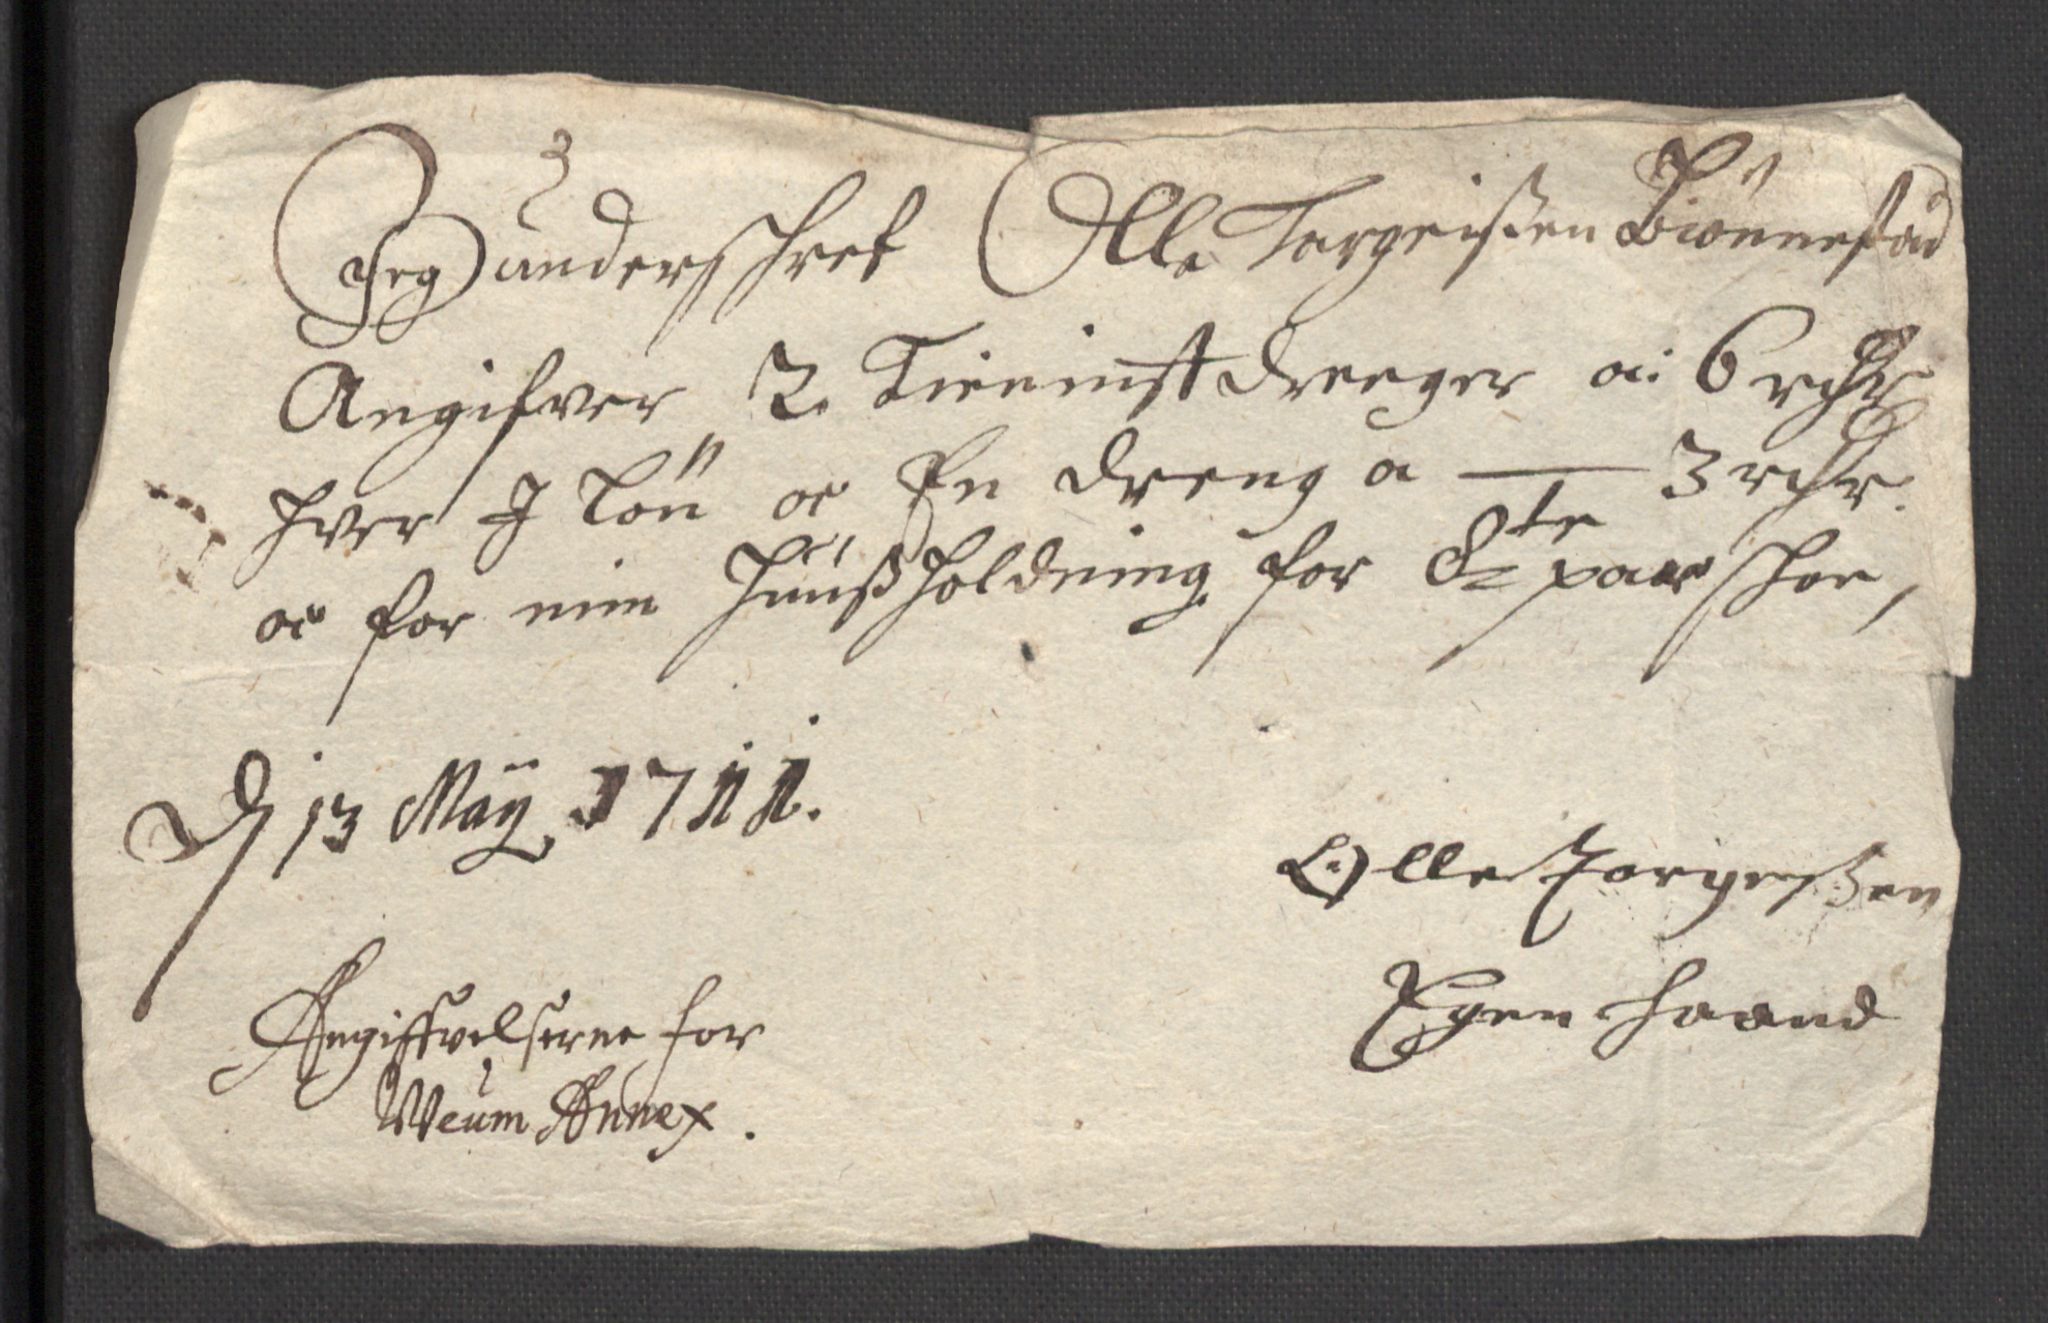 Jeg underschref Olle Targeißen Biønnestad
Angifver 2 Tienist drenger a: 6 rdlr
hver J Løn oc En dreng a — 3 rdlr.
oc for min Huußholdning for 8te par schoe,
D 13 Maÿ 1711.
Olle Targeßen
Egen haand
Angiffvelserne for
Weum Annex.